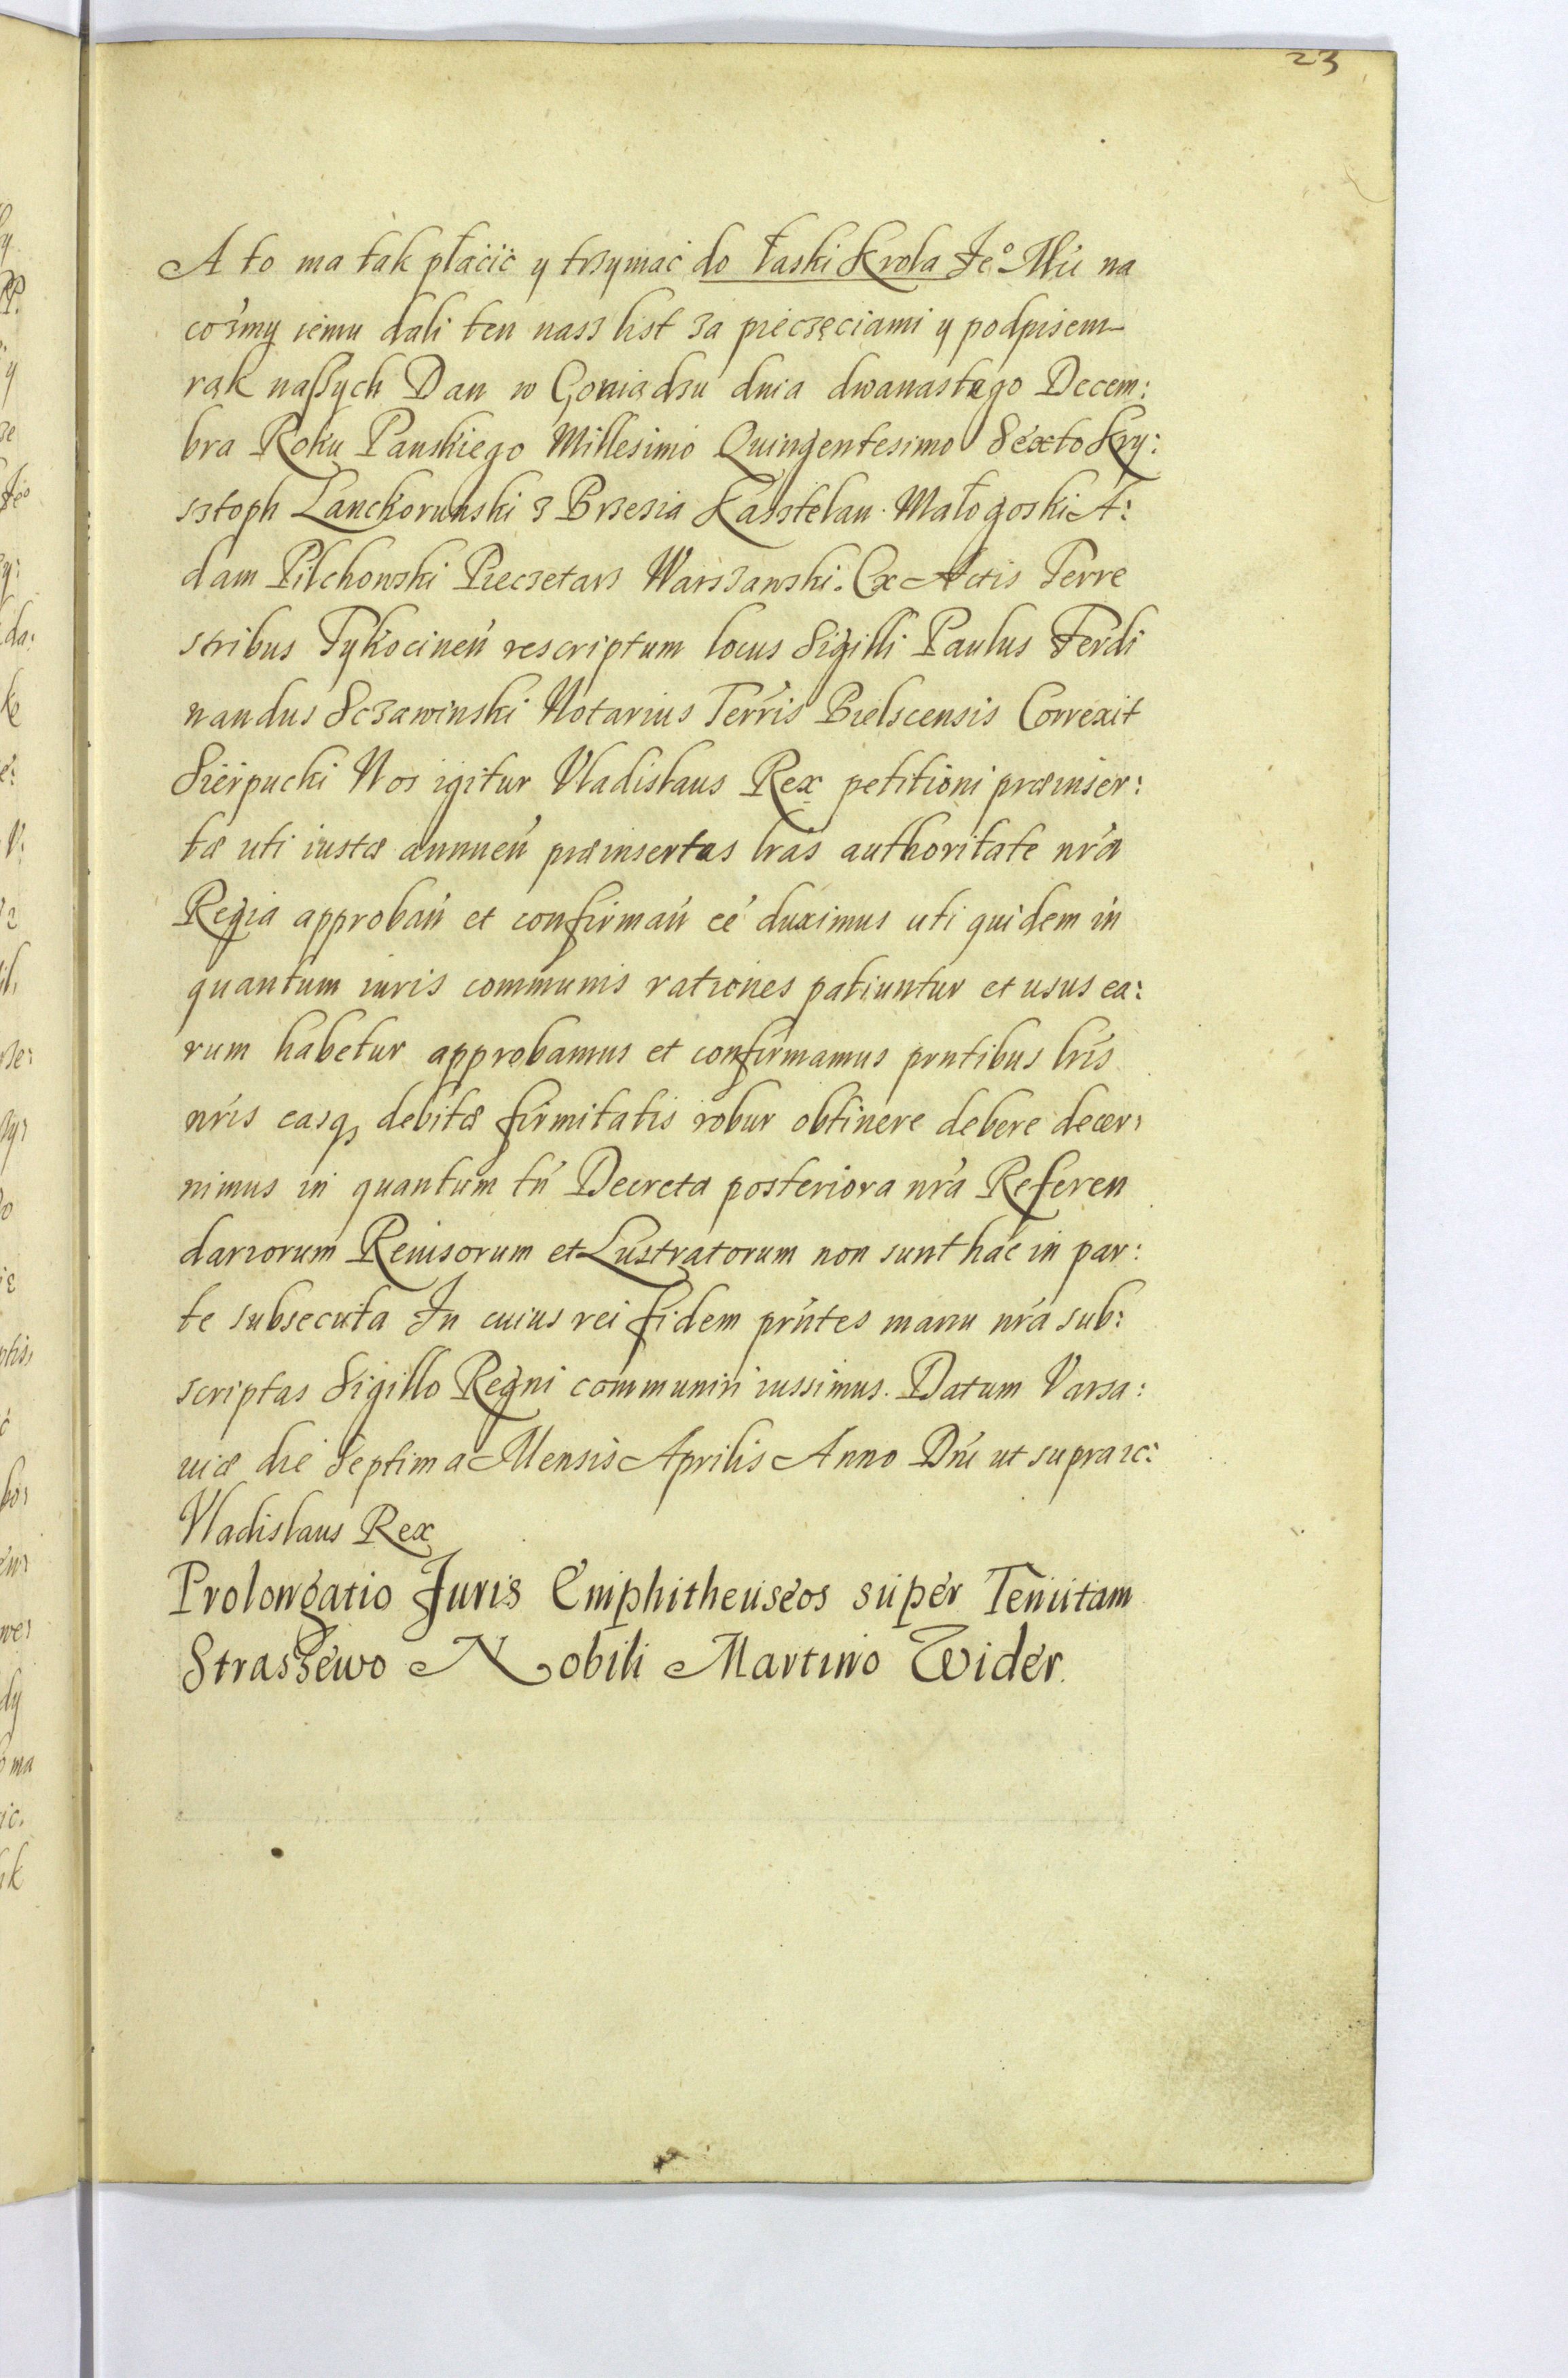 23
A to ma tak płacić y trzymać do łaski Krola Je° Mći na
cośmy iemu dali ten nasz list za pieczęciami y podpisem
rąk naszych Dan w Goniądzu dnia dwanastego Decem:
bra Roku Panskiego Millesimo Quingentesimo Sexto Kry:
sztoph Lanckorunski z Brzezia Kasztelan Małogoski A:
dam Pilchowski Pieczetarz Warszawski. Ex Actis Terre
stribus Tykocineń rescriptum locus Sigilli Paulus Ferdi
nandus Sczawinski Notarius Terris Bielscensis Correxit
Sierpucki Nos igitur Vladislaus Rex petitioni præinser:
tæ uti iustæ annueń præinsertas lras authoritate nrá
Regia approbań et confirmań eé duximus uti quidem in
quantum iuris communis rationes patiuntur et usus ea:
rum habetur approbamus et confirmamus prntibus lris
nris easq, debitæ firmitatis robur obtinere debere decer:
nimus in quantum tń Decreta posteriora nrá Referen
dariorum Reuisorum et Lustratorum non sunt hac in par:
te subsecuta In cuius rei fidem prńtes manu nrá sub:
scriptas Sigillo Regni communiri iussimus. Datum Varsa:
uiæ die Septima Mensis Aprilis Anno Dni ut supra ꝛc:
Vladislaus Rex
Prolongatio Juris Emphitheuseos super Tenutam
Straszewo Nobili Martino Wider.